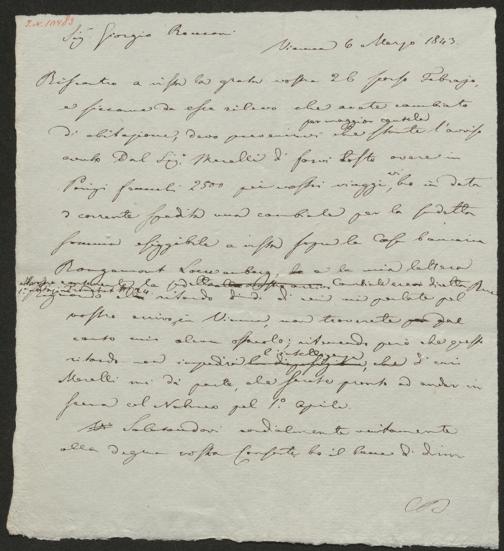 Sigr Giorgio Ronconi
Vienna 6 Marzo 1843
Riscontro a vista la grata vostra 26 scorso Febrajo,
e siccome da essa rilevo che avete cambiato
per maggior cautela
di abitazione, devo prevenirvi che stante l'avviso
avuto dal Sigr Merelli di farvi avere in
Parigi franchi 2500 pei vostri viaggi, ho in data
3 corrente spedito una cambiale per la suddetta
somma esigibile a vista sopra la Casa bancaria
Rougemont Löwenberg, e la mia lettera
ritardo di di cui mi parlate pel
vostro arrivo in Vienna, non troverete dal
canto mio alcun ostacolo; ritenendo però che questo
ritardo non impedirà che di cui
Merelli mi dà parte, che sarete pronto ad andar in
scena col Nabucco pel 1º Aprile.
Salutandovi cordialmente unitamente
alla degna vostra Consorte ho il bene di dirmi